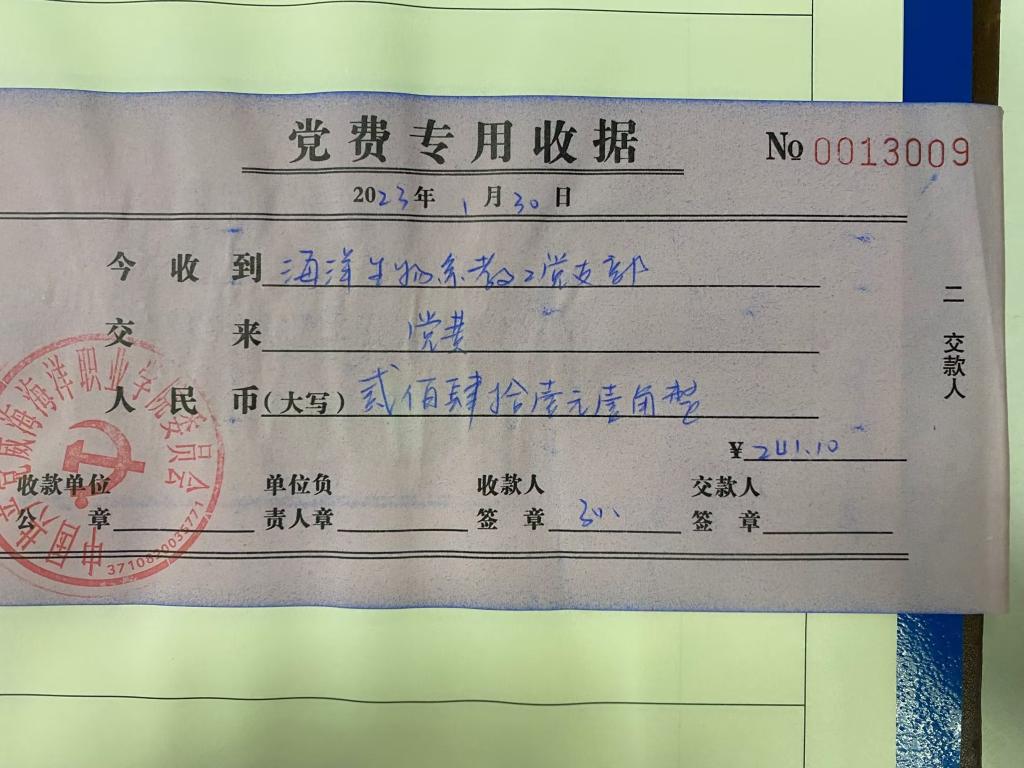 党费专用收据
№ 0013009
2023年1月30日
今收到 海洋生物系教工党支部
交来 党费
人民币(大写) 贰佰肆拾壹元壹角整
¥ 241.10
收款单位公章
单位负责人章
收款人签章
交款人签章
二 交款人
中国共产党威海海洋职业学院委员会
3710820035771